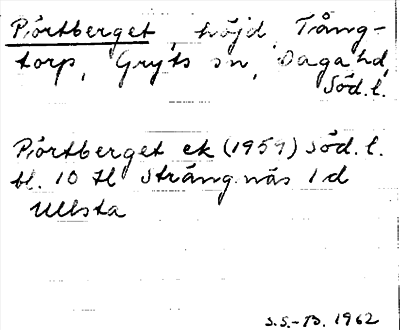 Pörtberget, höjd, Tång-
torp, Gryts sn, Daga hd,
Söd. l.
Pörtberget ek (1959) Söd. l.
bl. 10 H Strängnäs 1 d
Ullsta
S.S.-B. 1962